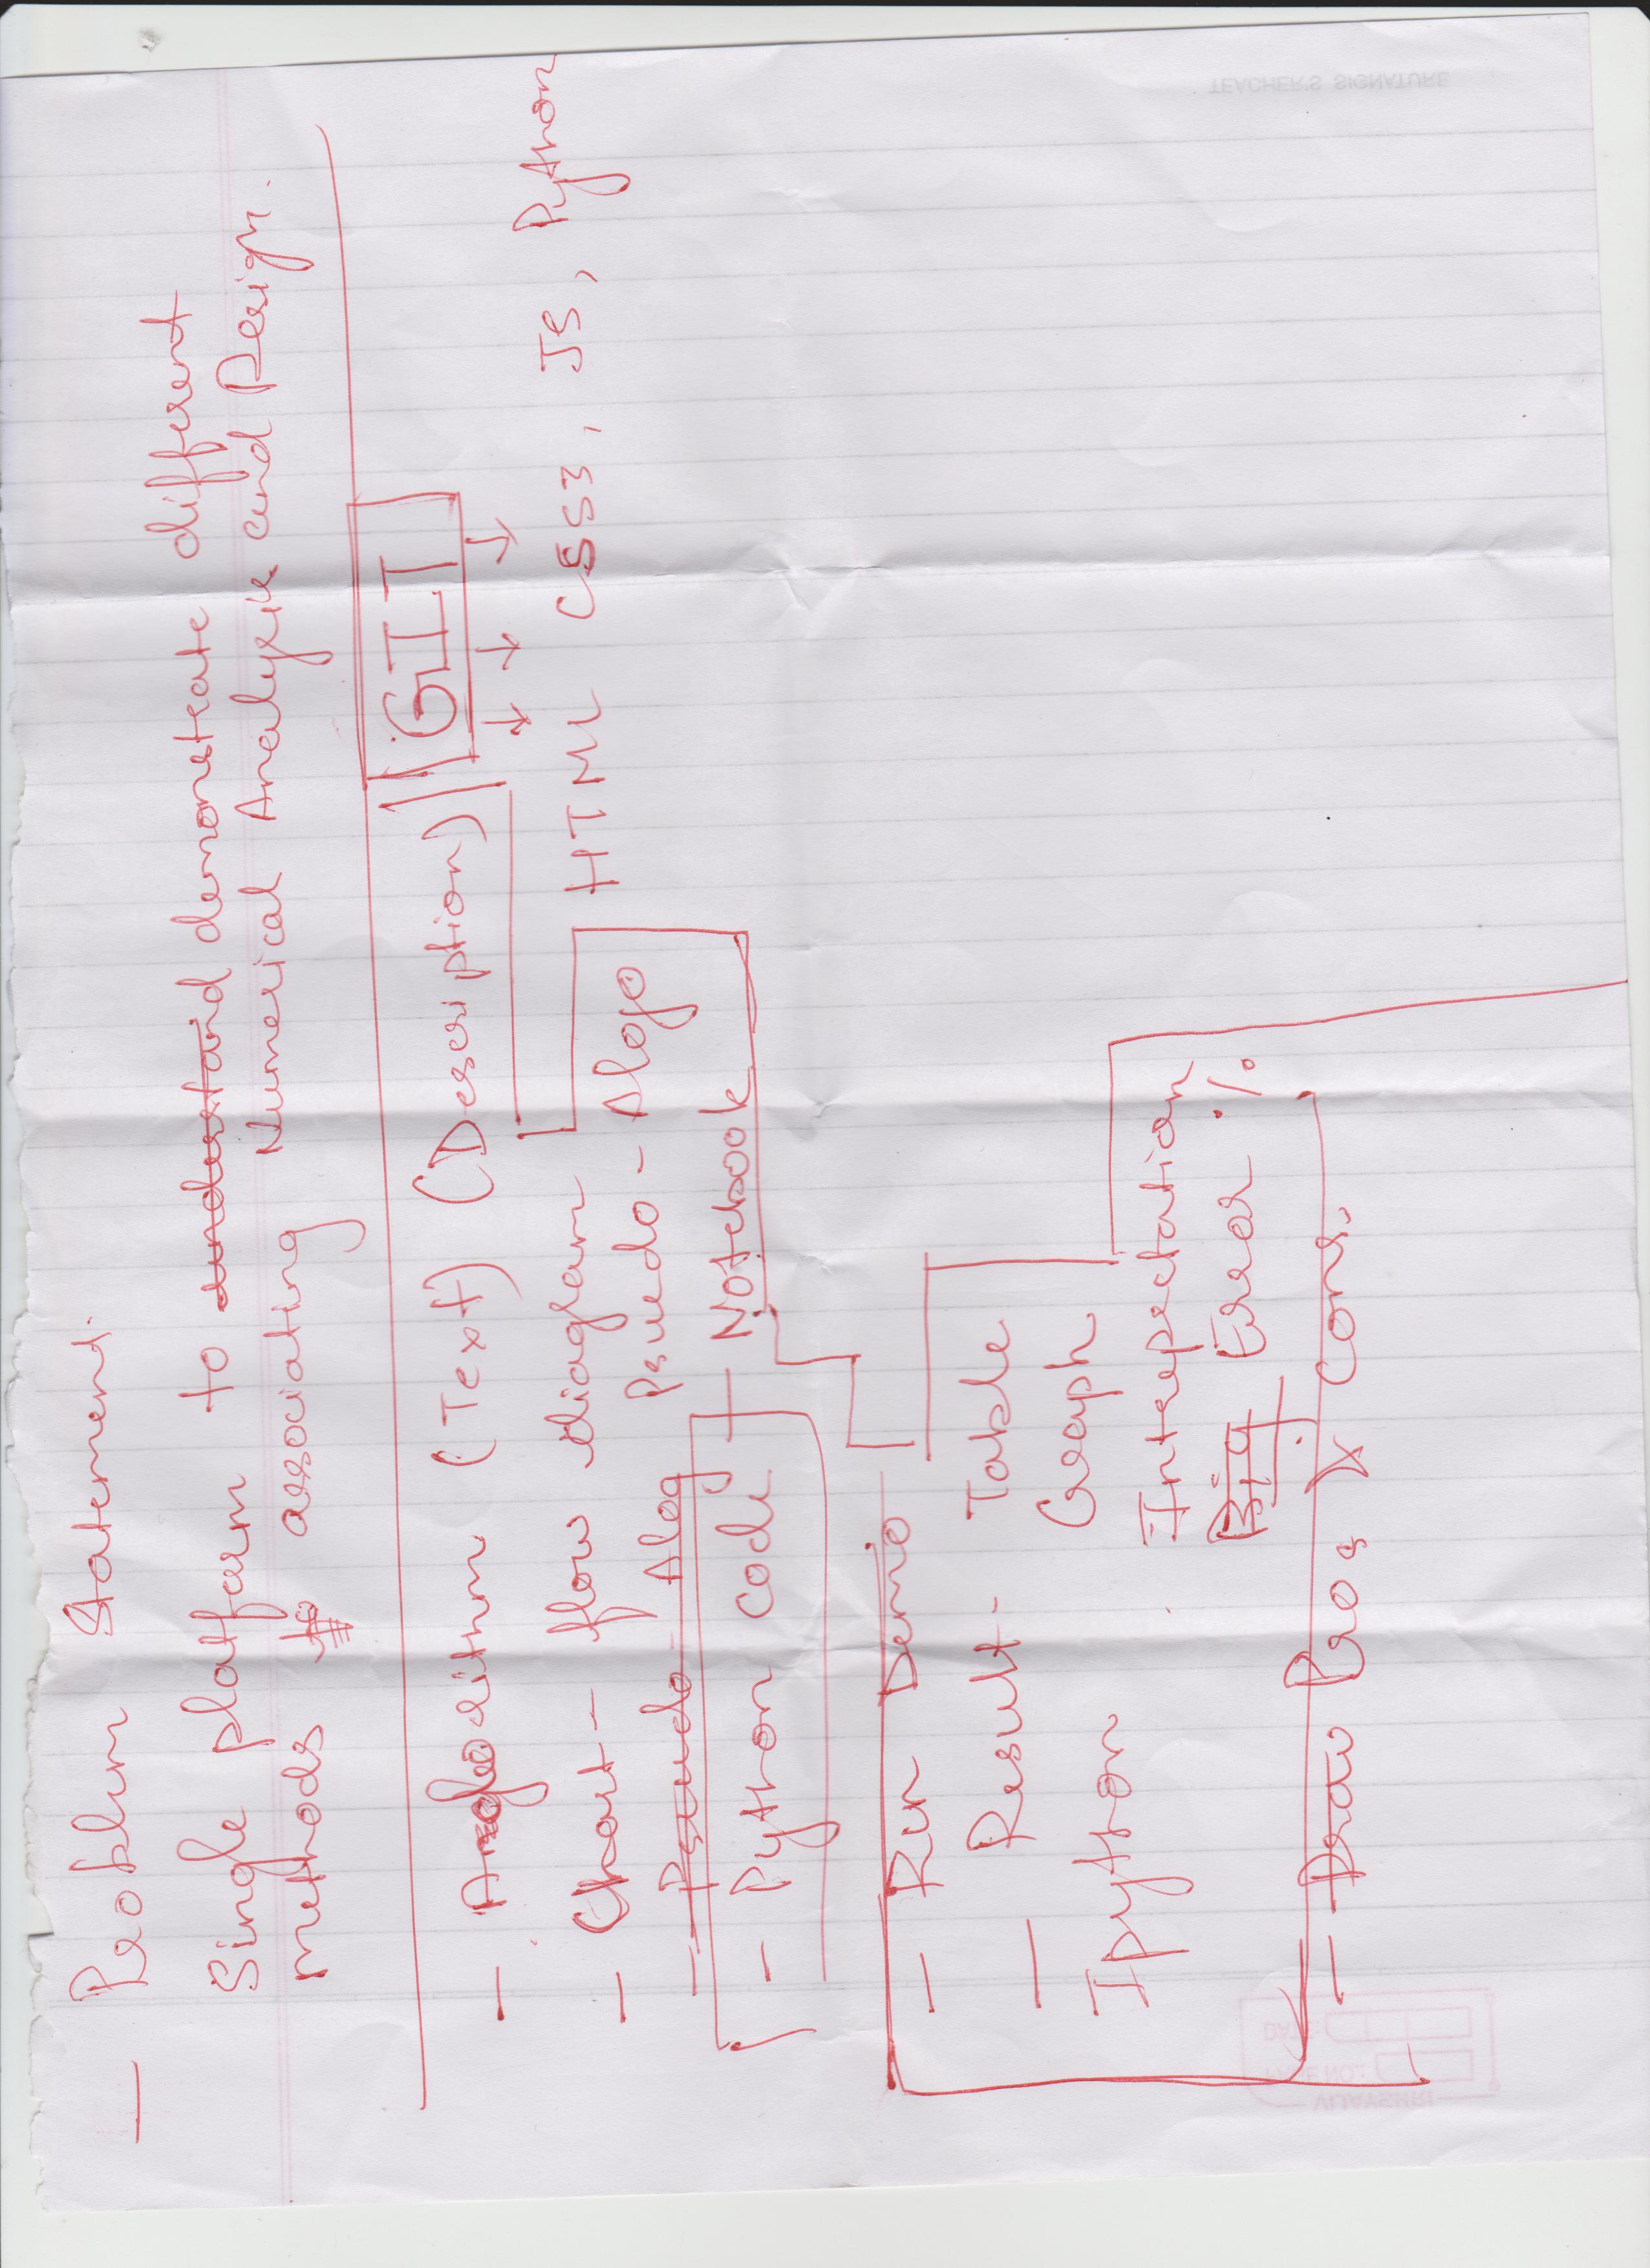 — Problem Statement.
Single platform to understand demonstrate different
methods to associating Numerical Analysis and Design.
GIT
— Algorithm (Text) (Description)
HTML CSS3, JS, Python
— Chart - flow diagram
— Pseudo - Alog Pseudo - Algo
— Python code — Notebook
— Run Demo
— Result - Table
Ipython Graph
Intrepretation
Big Error %
— Draw Pros & Cons.
TEACHER'S SIGNATURE
VIJAYSHRI
PAGE NO.:
DATE